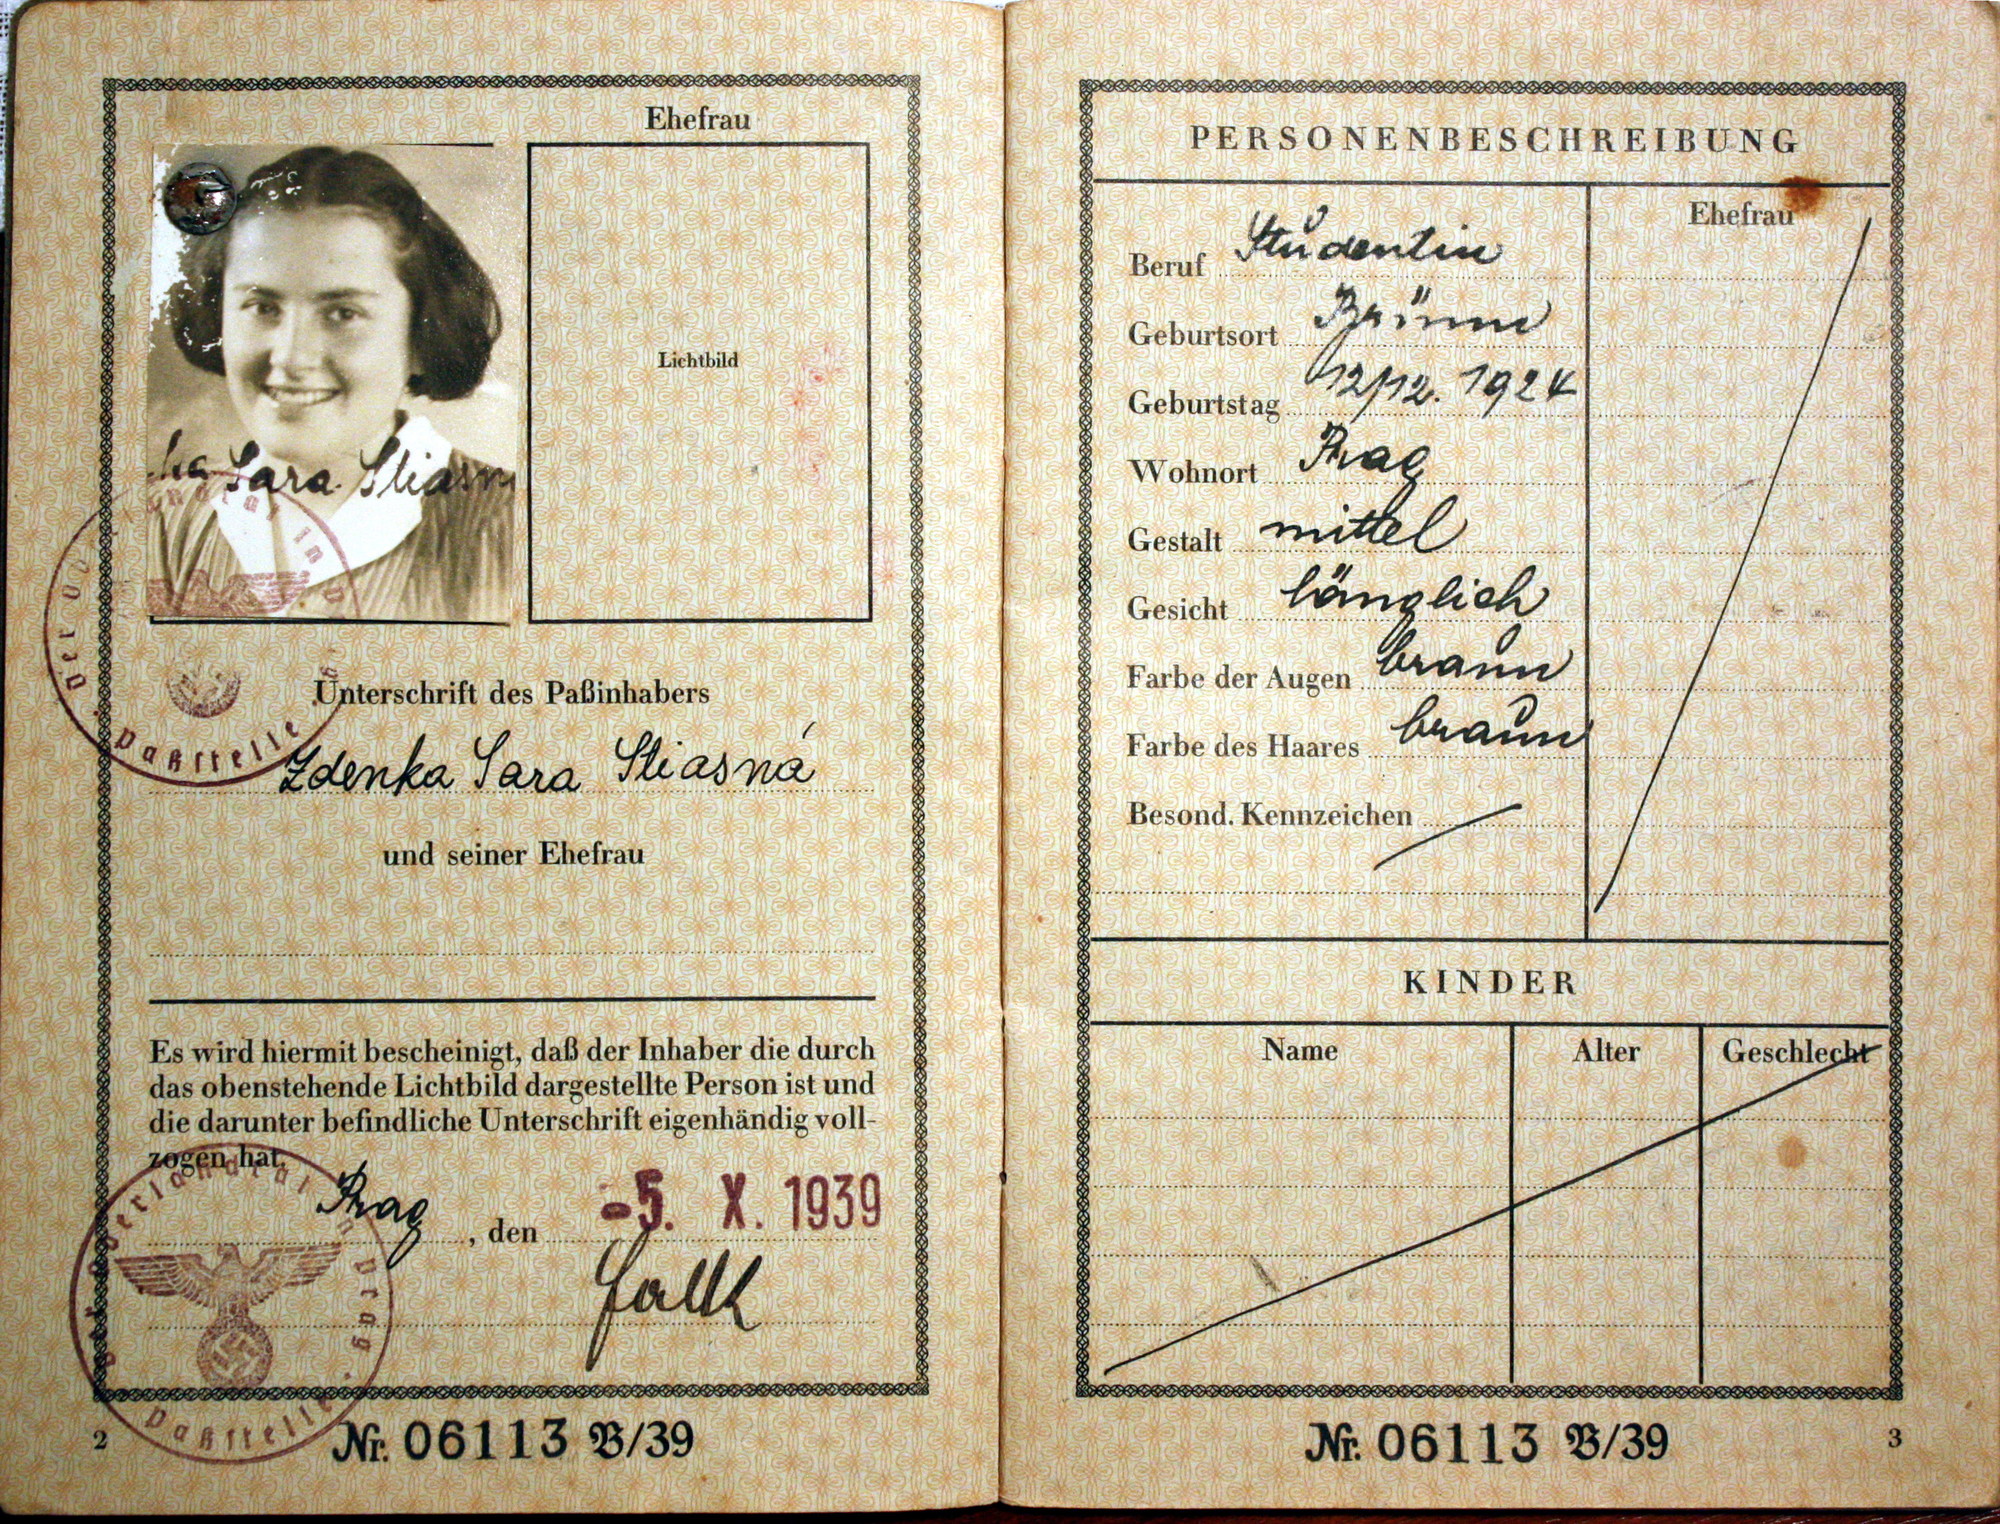 Ehefrau
Lichtbild
ka Sara Stiasn
Unterschrift des Paßinhabers
Zdenka Sara Stiasná
und seiner Ehefrau
Es wird hiermit bescheinigt, daß der Inhaber die durch
das obenstehende Lichtbild dargestellte Person ist und
die darunter befindliche Unterschrift eigenhändig voll-
zogen hat.
Prag, den -5. X. 1939
Der Oberlandrat in Prag
Paßstelle
2
Nr. 06113 B/39
PERSONENBESCHREIBUNG
Ehefrau
Beruf Studentin
Geburtsort Brünn
Geburtstag 12/12. 1924
Wohnort Prag
Gestalt mittel
Gesicht länglich
Farbe der Augen braun
Farbe des Haares braun
Besond. Kennzeichen
KINDER
Name Alter Geschlecht
Nr. 06113 B/39
3